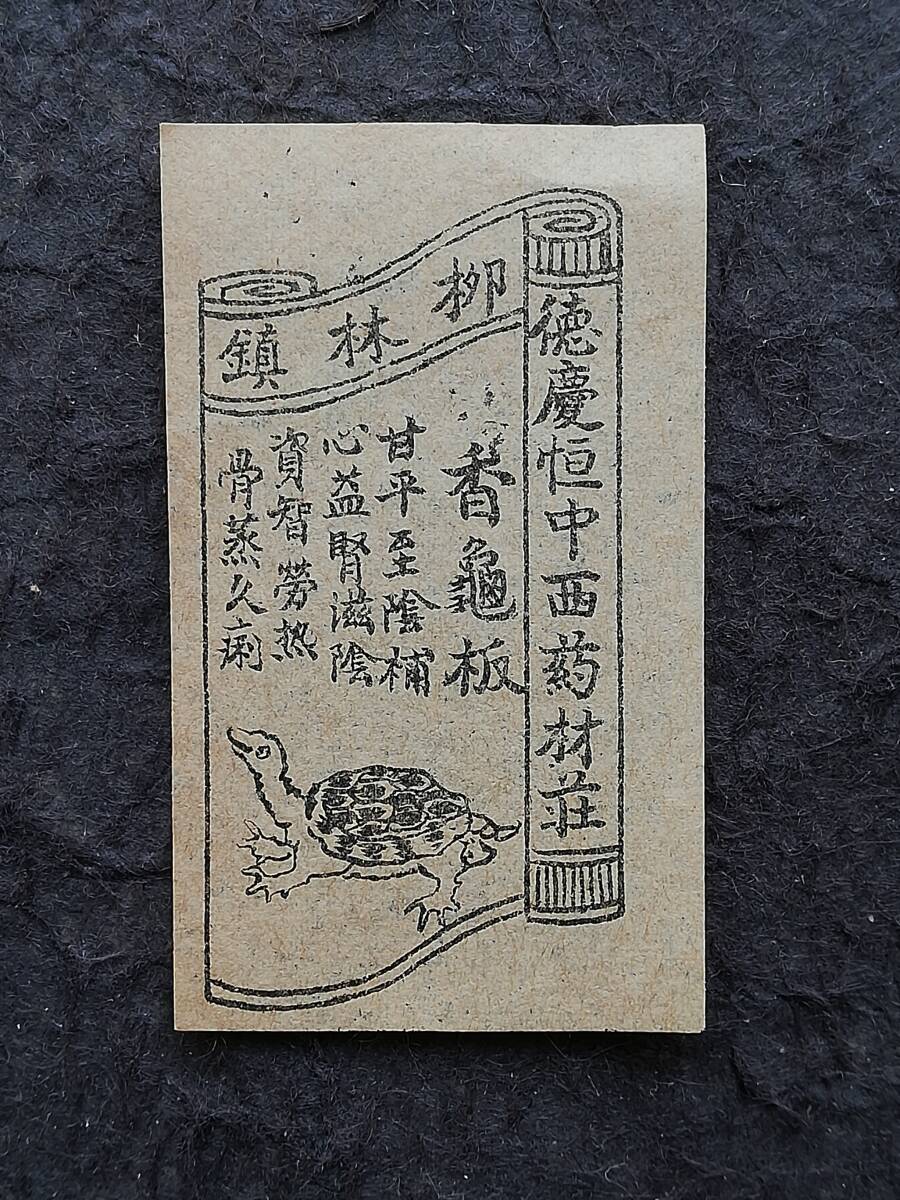 柳林鎮
德慶恒中西葯材莊
香龜板
甘平至陰補
心益腎滋陰
資智勞热
骨蒸久痢